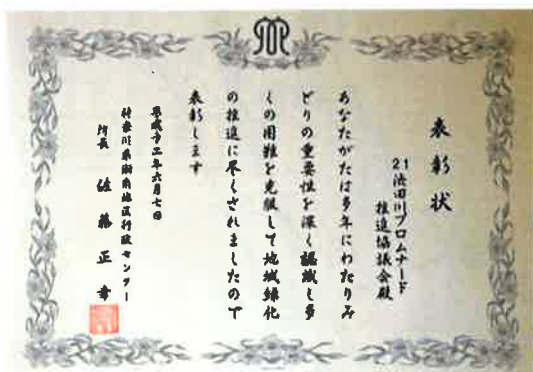 表彰状
21渋田川プロムナード
推進協議会殿
あなたがたは多年にわたりみ
どりの重要性を深く認識し多
くの困難を克服して地域緑化
の推進に尽くされましたので
表彰します
平成十二年六月七日
神奈川県湘南地区行政センター
所長 佐藤正幸